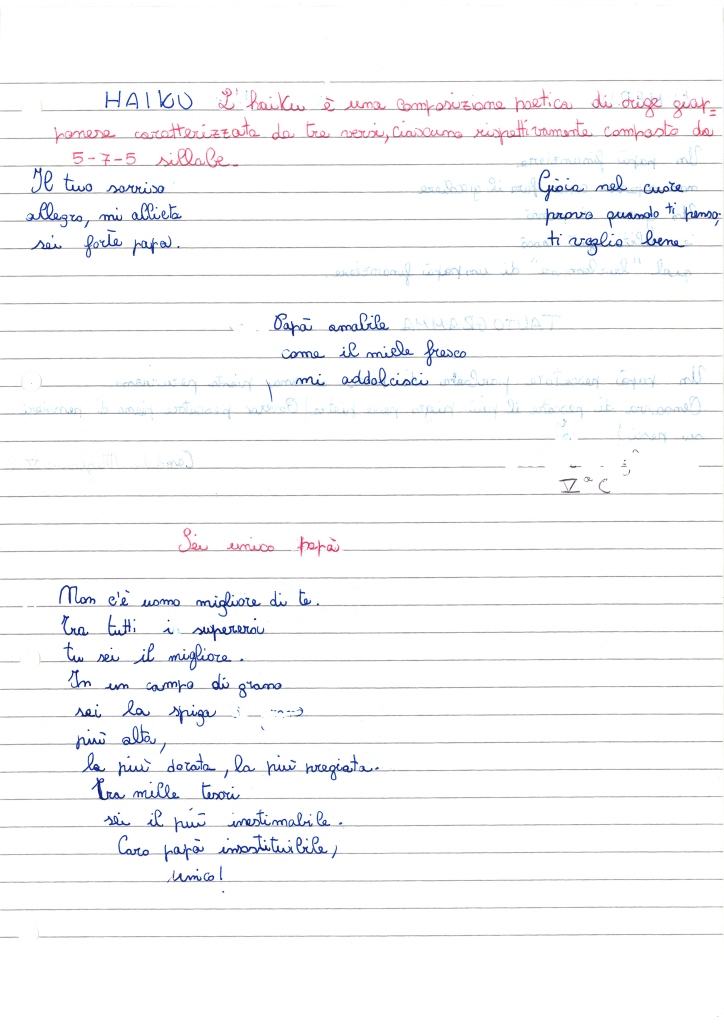 HAIKU L'haiku è una composizione poetica di orige giap=
ponese caratterizzata da tre versi, ciascuno rispettivamente composto da
5-7-5 sillabe.
Il tuo sorriso
allegro, mi allieta
sei forte papà.
Gioia nel cuore
provo quando ti penso;
ti voglio bene
Papà amabile
come il miele fresco
mi addolcisci
Vª C
Sei unico papà
Non c'è uomo migliore di te.
Tra tutti i supereroi
tu sei il migliore.
In un campo di grano
sei la spiga
più alta,
la più dorata, la più pregiata.
Tra mille tesori
sei il più inestimabile.
Caro papà insostituibile,
unico!